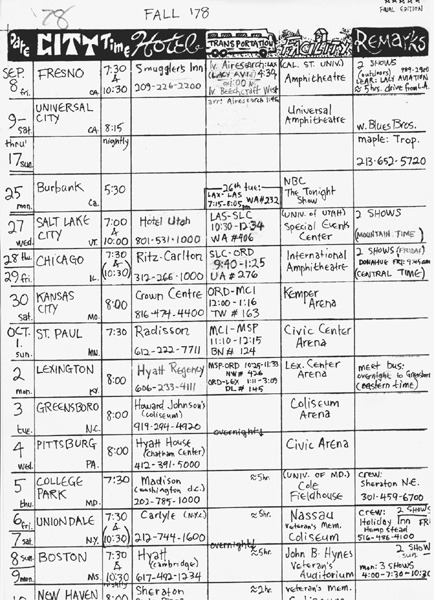 '78
FALL '78
FINAL EDITION
Date CITY Time Hotel TRANSPORTATION FACILITY Remarks
SEP. 8 fri. FRESNO CA. 7:30 & 10:30 Smuggler's Inn 209-226-2200
(CAL. ST. UNIV.) Amphitheatre
2 SHOWS (outdoors)
≈ 5 hrs. drive from L.A.
9- sat. thru' 17 sun. UNIVERSAL CITY CA. 8:15 nightly
Universal Amphitheatre
w. Blues Bros.
maple: Trop.
213-652-5720
25 mon. Burbank Ca. 5:30
26th tue: LAX-LAS 7:15-8:05 WA#232
NBC The Tonight Show
27 Wed. SALT LAKE CITY UT. 7:00 & 10:00 Hotel Utah 801-531-1000
LAS-SLC 10:30-12:34 WA #406
(UNIV. of UTAH) Special Events Center
2 SHOWS
(MOUNTAIN TIME)
28 thu. 29 fri. CHICAGO IL. 7:30 & (10:30) Ritz-Carlton 312-266-1000
SLC-ORD 9:40-1:25 UA #276
International Amphitheatre
2 SHOWS (FRIDAY)
(CENTRAL TIME)
30 Sat. KANSAS CITY MO. 8:00 Crown Centre 816-474-4400
ORD-MCI 12:00-1:16 TW #163
Kemper Arena
OCT. 1. sun. ST. PAUL MN. 7:30 Radisson 612-222-7711
MCI-MSP 11:10-12:15 BN #124
Civic Center Arena
2 mon. LEXINGTON KY. 8:00 Hyatt Regency 606-233-4111
MSP-ORD 10:25-11:33 NW #426
ORD-LEX 1:11-3:09 DL #145
Lex. Center Arena
meet bus: overnight to Greensboro (eastern time)
3 tue. GREENSBORO N.C. 8:00 Howard Johnson's (coliseum) 919-294-4920
overnight
Coliseum Arena
4 Wed. PITTSBURG PA. 8:00 Hyatt House (Chatham Center) 412-391-5000
Civic Arena
5 thu. COLLEGE PARK MD. 7:30 Madison (washington d.c.) 202-785-1000
≈5hr.
(UNIV. OF MD.) Cole Fieldhouse
crew: Sheraton N.E. 301-459-6700
6 fri. 7 sat. UNIONDALE N.Y. 7:30 & (10:30) Carlyle (N.Y.C.) 212-744-1600
≈5hr.
overnight
Nassau Veteran's Mem. Coliseum
crew: 2 SHOWS FRI
Holiday Inn Hempstead 516-486-4100
8 sun 9 mon. BOSTON MS. 7:30 & 10:30 Hyatt (Cambridge) 617-492-1234
≈5hr.
John B. Hynes Veteran's Auditorium
2 SHOW sun.
mon: 3 SHOWS 4:00-7:30-10:30
NEW HAVEN Sheraton ≈2hr. veteran's mem.